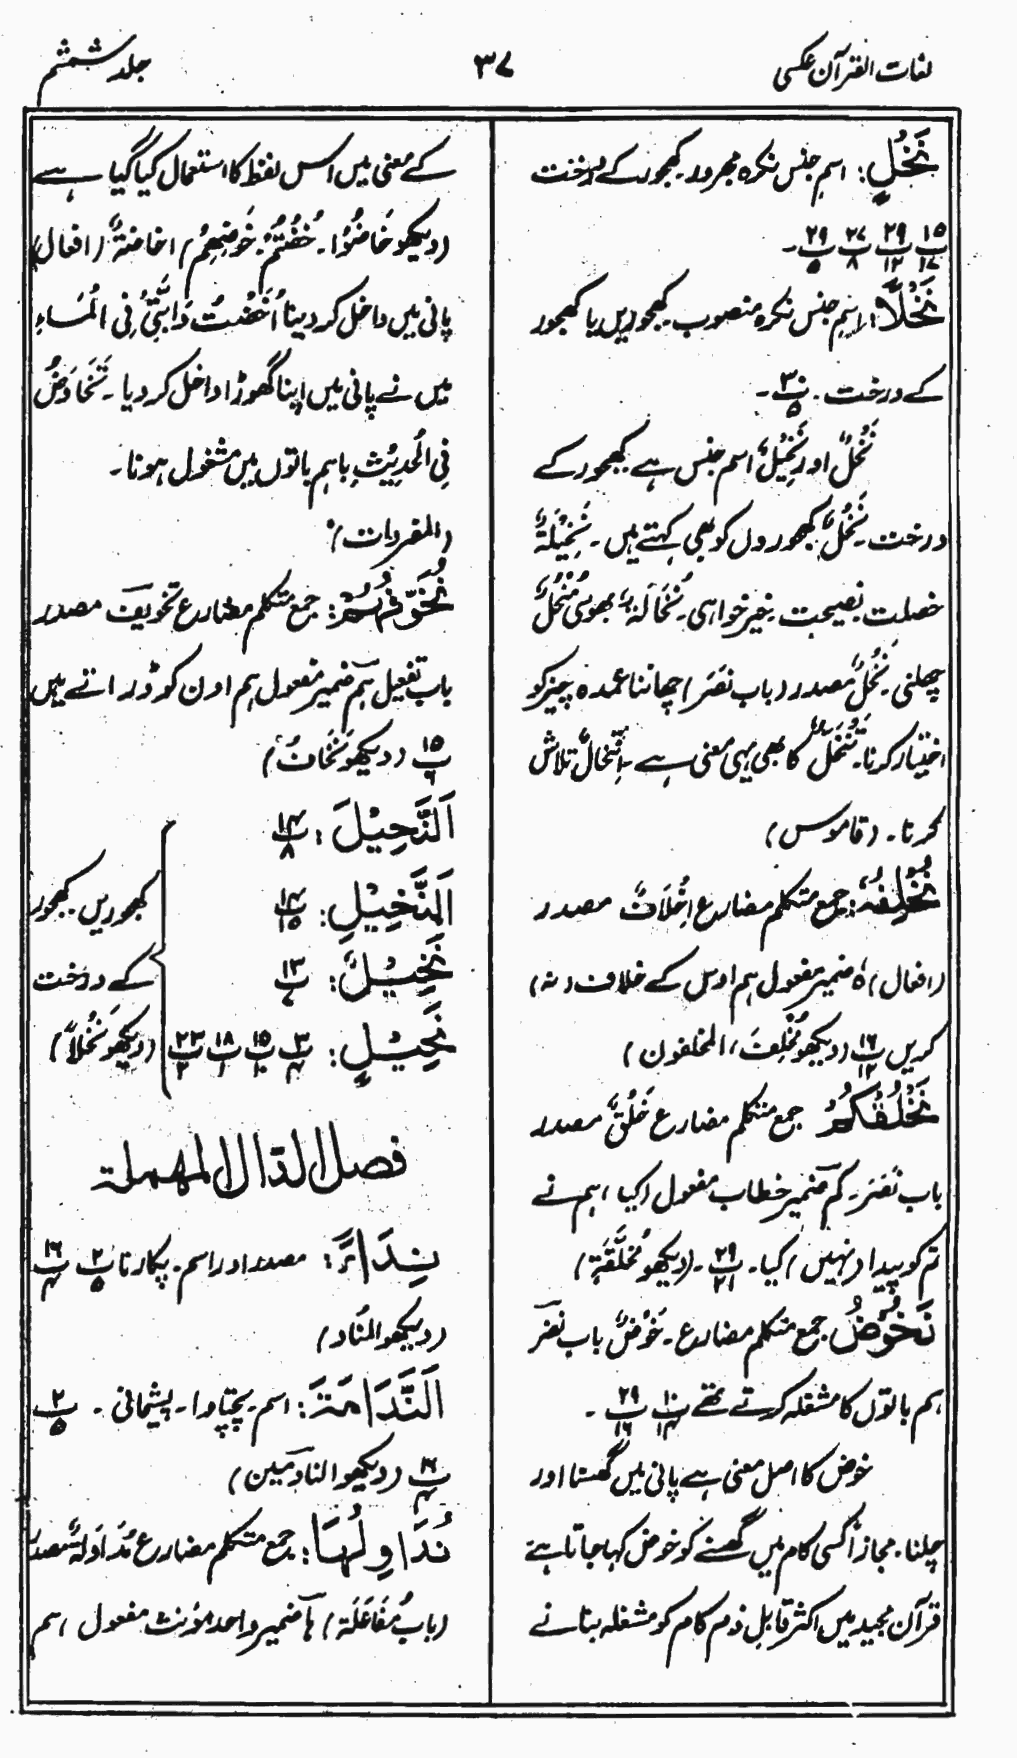 لغات القرآن عکسی ۳۷ جلد ششم
نَخْلٍ: اسم جنس نکرہ مجرور۔ کھجور کے درخت
۱۵/۱۷ ۲۹/۱۲ ۲۷/۸ ۲۹/۵ ۔
نَخْلًا: اسم جنس نکرہ منصوب۔ کھجوریں یا کھجور
کے درخت۔ ۳۰/۵ ۔
نَخْلٌ اور نَخِیْلٌ اسم جنس ہے کھجور کے
درخت۔ نَخْلٌ کھجوروں کو بھی کہتے ہیں۔ نَخِیْلَۃٌ
خصلت نصیحت۔ خیر خواہی۔ نُخَالَۃٌ بھوسی مُنْخُلٌ
چھلنی۔ نَخْلٌ مصدر (باب نصَرَ) چھاننا عمدہ چیز کو
اختیار کرنا۔ تَنَخُّلٌ کا بھی یہی معنی ہے۔ اِنْتِخَالٌ تلاش
کرنا۔ (قاموس)
نُخْلِفُہٗ: جمع متکلم مضارع اِخْلَافٌ مصدر
(افعال) ہٗ ضمیر مفعول ہم اوس کے خلاف (نہ)
کریں ۱۶/۱۲ (دیکھو نُخْلِفَ، المخلفون)
نَخْلُقْکُّمْ جمع متکلم مضارع خَلْقٌ مصدر
باب نَصَرَ۔ کُم ضمیر خطاب مفعول (کیا) ہم نے
تم کو پیدا (نہیں) کیا۔ ۲۹/۲۱ ۔ (دیکھو مُخَلَّقَۃٍ)
نَخُوْضُ جمع متکلم مضارع۔ خَوْضٌ باب نصَرَ
ہم باتوں کا مشغلہ کرتے تھے ۱۰/۱۴ ۲۹/۱۶ ۔
خوض کا اصل معنی ہے پانی میں گھسنا اور
چلنا۔ مجازاً کسی کام میں گھسنے کو خوض کہا جاتا ہے
قرآن مجید میں اکثر قابلِ ذم کام کو مشغلہ بنانے
کے معنی میں اس لفظ کا استعمال کیا گیا ہے
(دیکھو خَاضُوْا۔ خُضْتُمْ۔ خَوْضِھِمْ) اخاضۃٌ (افعال)
پانی میں داخل کر دینا اَخَضْتُ دَابَّتِیْ فِی الْمَاءِ
میں نے پانی میں اپنا گھوڑا داخل کر دیا۔ تَخَاوَضُ
فِی الْحَدِیْثِ باہم باتوں میں مشغول ہونا۔
(المفردات)
نُخَوِّفُہُمْ: جمع متکلم مضارع تخویف مصدر
باب تفعیل ہم ضمیر مفعول ہم اون کو ڈراتے ہیں
۱۵/۶ (دیکھو نَخَافُ)
اَلنَّخِیْلَ: ۱۴/۸
اَلنَّخِیْلِ: ۱۴/۱۵ کھجوریں۔ کھجور
نَخِیْلٌ: ۱۳/۷ کے درخت
نَخِیْلٍ: ۳/۴ ۱۵/۱۰ ۱۸/۱ ۲۳/۲ (دیکھو نَخْلاً)
فصل الدال المہملۃ
نِدَاءً: مصدر اور اسم۔ پکارنا ۲/۵ ۱۶/۴
(دیکھو المنَاد)
اَلنَّدَامَۃَ: اسم۔ پچتاوا۔ پشیمانی۔ ۲/۵
۱۶/۴ (دیکھو النادمین)
نُدَاوِلُہَا: جمع متکلم مضارع مُدَاوَلَۃٌ مصدر
(باب مُفَاعَلَۃ) ہا ضمیر واحد مؤنث مفعول، ہم